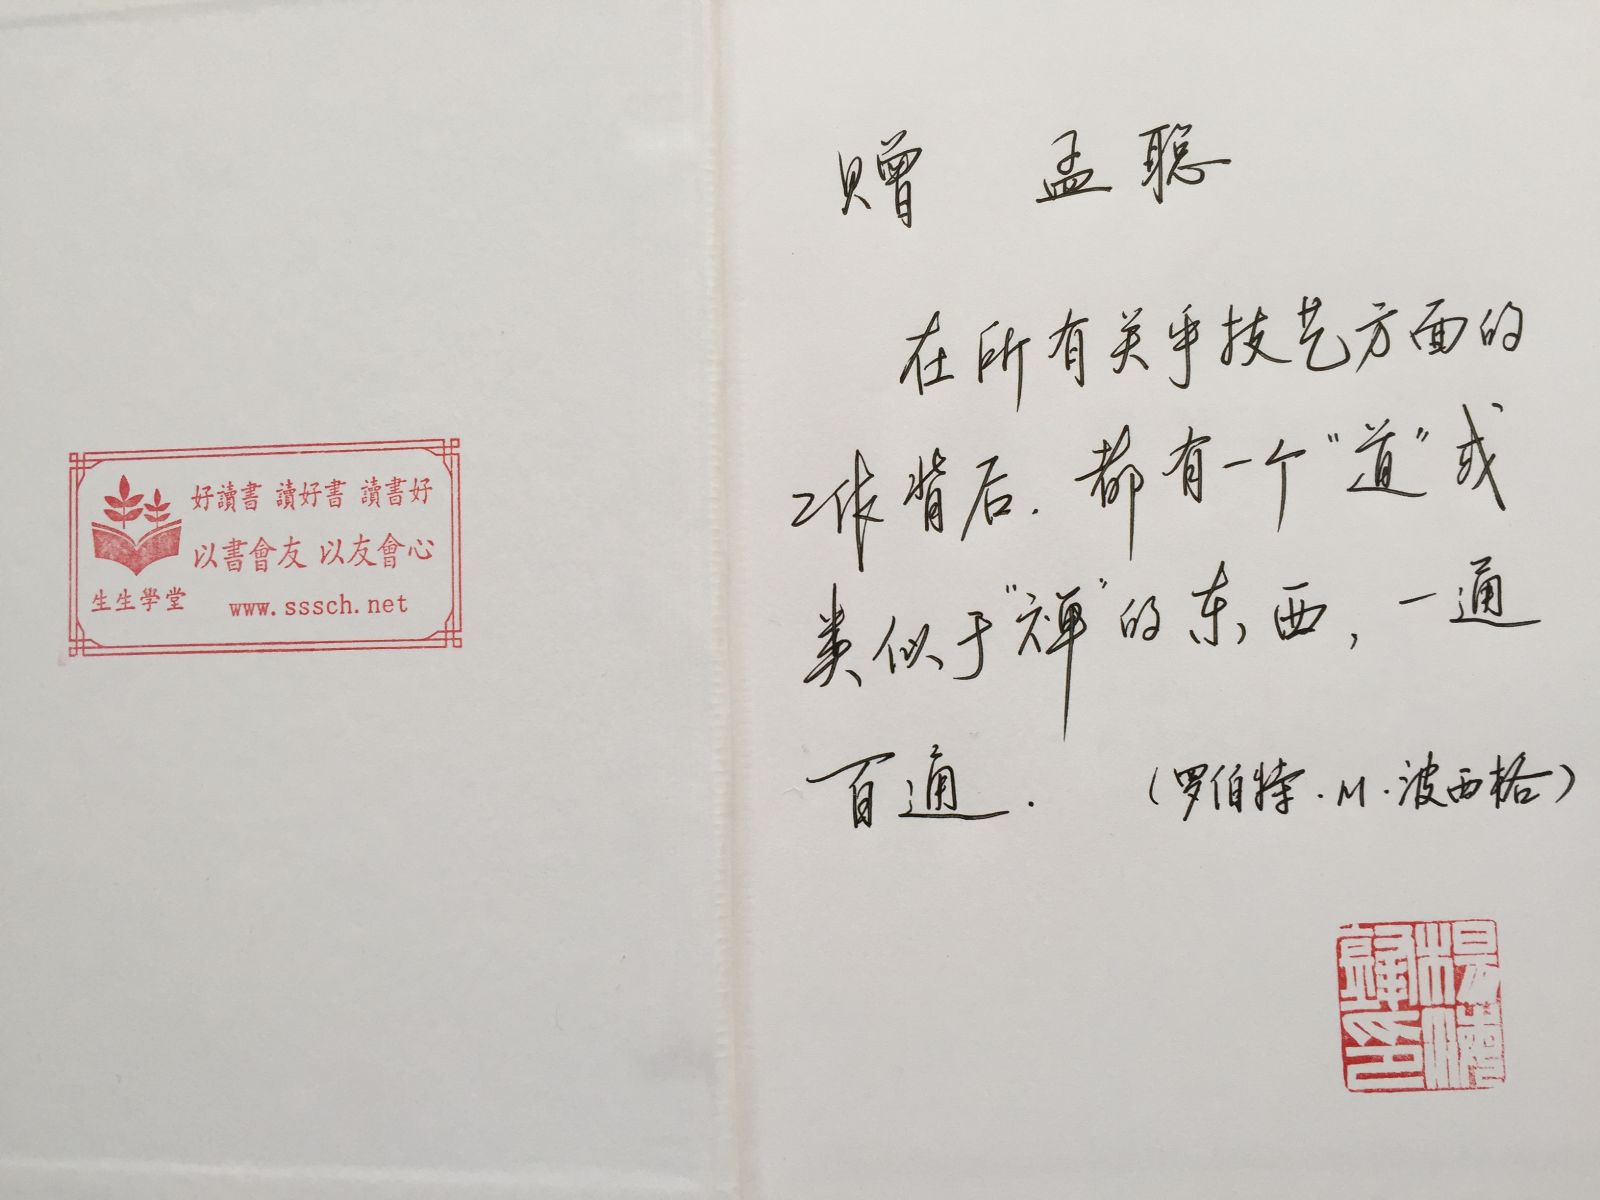 好讀書 讀好書 讀書好
以書會友 以友會心
生生學堂
www.sssch.net
赠 孟聪
在所有关乎技艺方面的
工作背后.都有一个“道”或
类似于“禅”的东西,一通
百通.
(罗伯特.M.波西格)